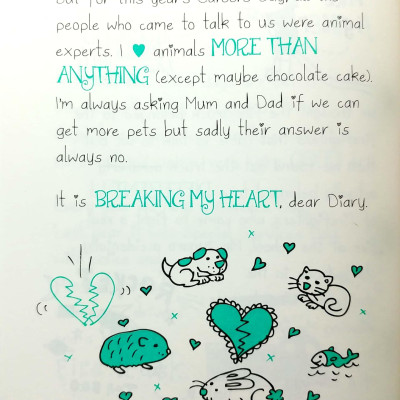 people who came to talk to us were animal
experts. I ♥ animals MORE THAN
ANYTHING (except maybe chocolate cake).
I'm always asking Mum and Dad if we can
get more pets but sadly their answer is
always no.
It is BREAKING MY HEART, dear Diary.